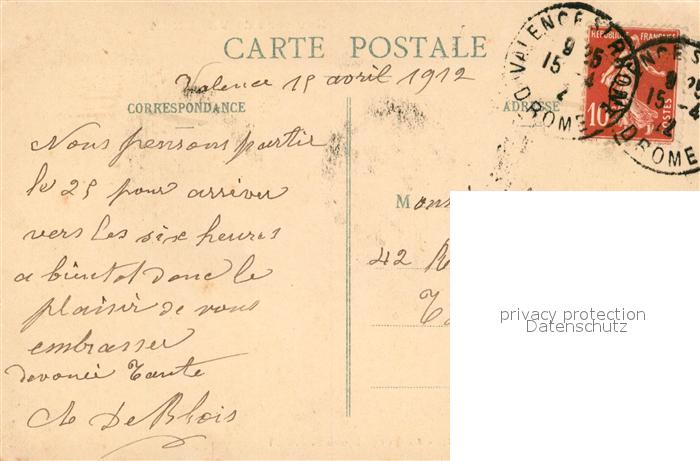 CARTE POSTALE
Valence 15 avril 1912
CORRESPONDANCE
ADRESSE
Nous pensons partir
le 25 pour arriver
vers les six heures
a bientot donc le
plaisir de vous
embrasser
devouée Tante
De Blois
42
VALENCE
9 25
15 -4
DROME
REPUBLIQUE FRANÇAISE
10
POSTES
15 -4
12
DROME
privacy protection
Datenschutz